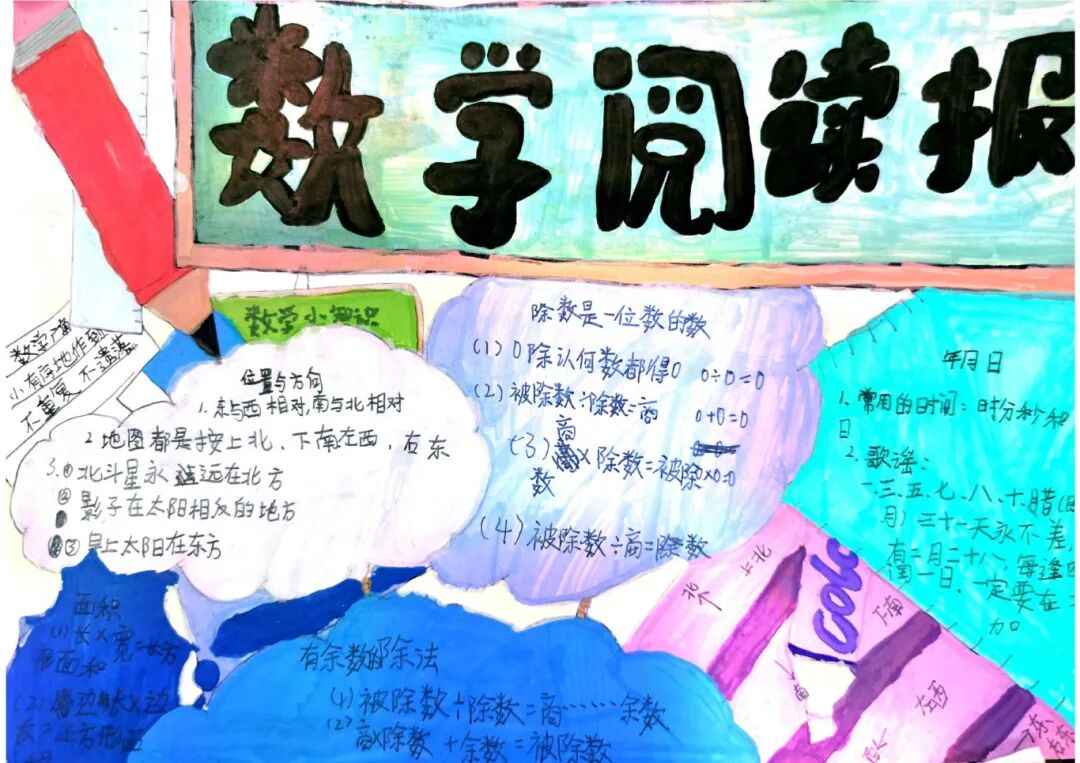 数学阅读报
数学小知识
数学广
小有序地作到
不重复、不遗落
位置与方向
1.东与西相对,南与北相对
2 地图都是按上北、下南左西,右东
3.①北斗星永远在北方
② 影子在太阳相反的地方
③ 早上太阳在东方
除数是一位数的数
(1) 0除认何数都得0 0÷0=0
(2) 被除数÷除数=商 0+0=0
(3) 商×除数=被除数 ×0=0
(4) 被除数÷商=除数
年月日
1、常用的时间:时分秒和
日
2、歌谣:
一、三、五、七、八、十、腊(
月)三十一天永不差,
有二月二十八,每逢四
闰一日,一定要在
加
面积
(1) 长×宽=长方
形面积
(2) 边长×边
长=正方形面
有余数的除法
(1) 被除数÷除数=商……余数
(2) 商×除数+余数=被除数
北
上北
下南
南
左西
西
东
右东